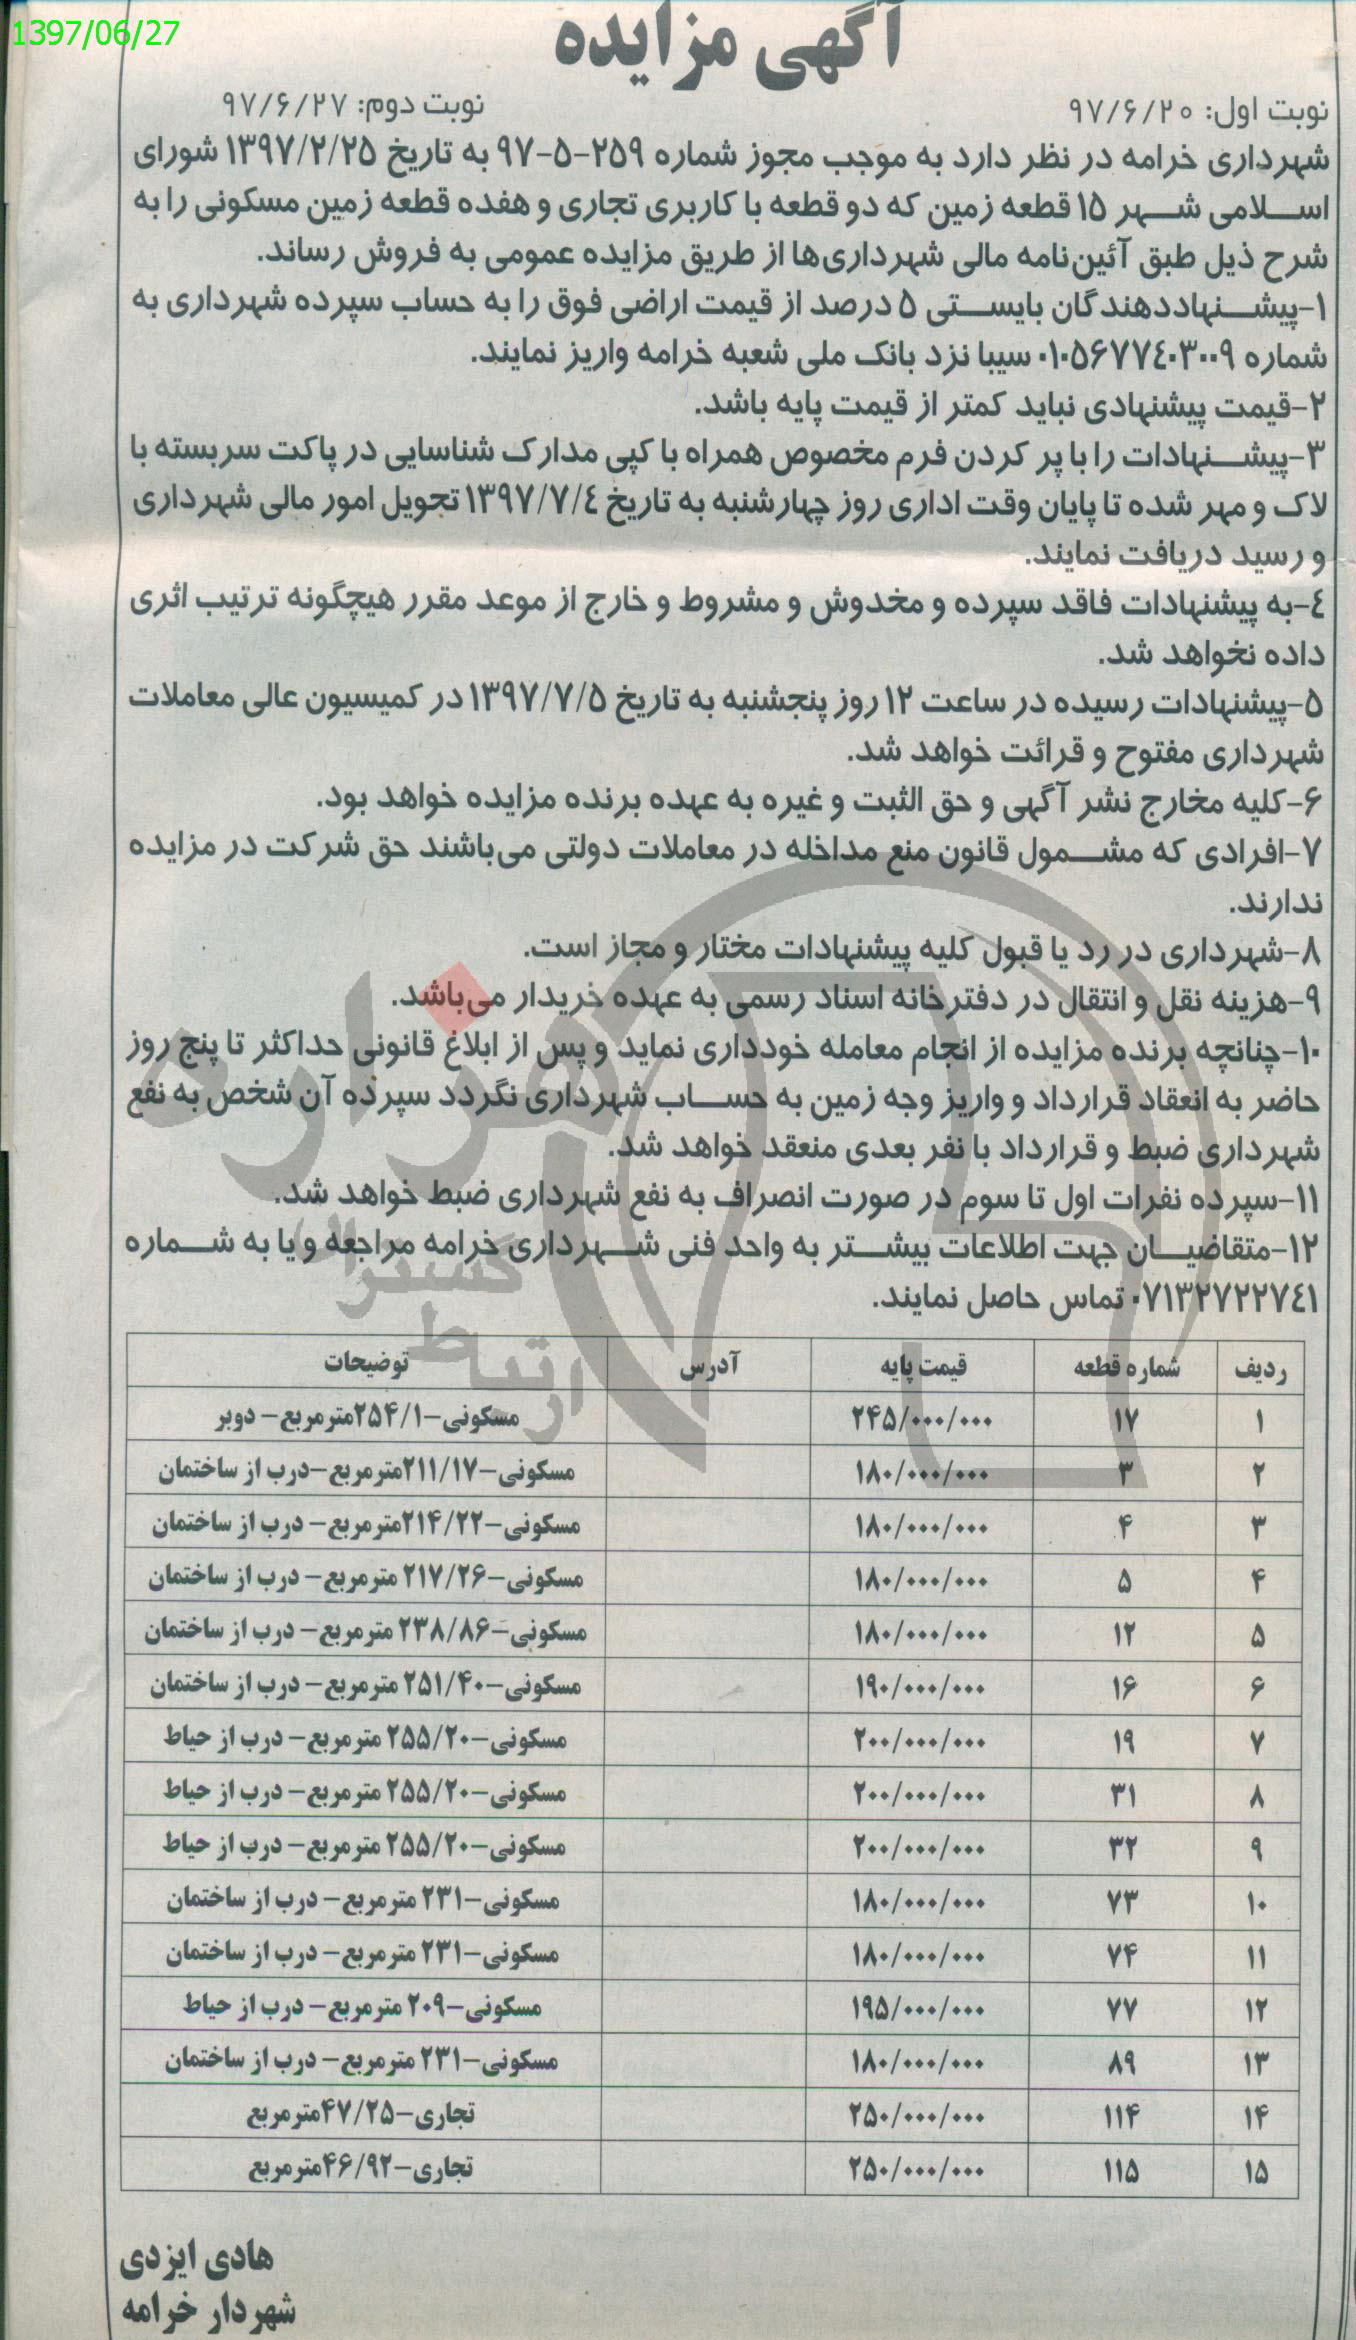 1397/06/27
آگهی مزایده
نوبت اول: ۹۷/۶/۲۰ نوبت دوم: ۹۷/۶/۲۷
شهرداری خرامه در نظر دارد به موجب مجوز شماره ۲۵۹-۵-۹۷ به تاریخ ۱۳۹۷/۲/۲۵ شورای
اسلامی شهر ۱۵ قطعه زمین که دو قطعه با کاربری تجاری و هفده قطعه زمین مسکونی را به
شرح ذیل طبق آئین‌نامه مالی شهرداری‌ها از طریق مزایده عمومی به فروش رساند.
۱-پیشنهاددهندگان بایستی ۵ درصد از قیمت اراضی فوق را به حساب سپرده شهرداری به
شماره ۰۱۰۵۶۷۷۴۰۳۰۰۹ سیبا نزد بانک ملی شعبه خرامه واریز نمایند.
۲-قیمت پیشنهادی نباید کمتر از قیمت پایه باشد.
۳-پیشنهادات را با پر کردن فرم مخصوص همراه با کپی مدارک شناسایی در پاکت سربسته با
لاک و مهر شده تا پایان وقت اداری روز چهارشنبه به تاریخ ۱۳۹۷/۷/۴ تحویل امور مالی شهرداری
و رسید دریافت نمایند.
۴-به پیشنهادات فاقد سپرده و مخدوش و مشروط و خارج از موعد مقرر هیچگونه ترتیب اثری
داده نخواهد شد.
۵-پیشنهادات رسیده در ساعت ۱۲ روز پنجشنبه به تاریخ ۱۳۹۷/۷/۵ در کمیسیون عالی معاملات
شهرداری مفتوح و قرائت خواهد شد.
۶-کلیه مخارج نشر آگهی و حق الثبت و غیره به عهده برنده مزایده خواهد بود.
۷-افرادی که مشمول قانون منع مداخله در معاملات دولتی می‌باشند حق شرکت در مزایده
ندارند.
۸-شهرداری در رد یا قبول کلیه پیشنهادات مختار و مجاز است.
۹-هزینه نقل و انتقال در دفترخانه اسناد رسمی به عهده خریدار می‌باشد.
۱۰-چنانچه برنده مزایده از انجام معامله خودداری نماید و پس از ابلاغ قانونی حداکثر تا پنج روز
حاضر به انعقاد قرارداد و واریز وجه زمین به حساب شهرداری نگردد سپرده آن شخص به نفع
شهرداری ضبط و قرارداد با نفر بعدی منعقد خواهد شد.
۱۱-سپرده نفرات اول تا سوم در صورت انصراف به نفع شهرداری ضبط خواهد شد.
۱۲-متقاضیان جهت اطلاعات بیشتر به واحد فنی شهرداری خرامه مراجعه و یا به شماره
۰۷۱۳۲۷۲۲۷۴۱ تماس حاصل نمایند.
ردیف شماره قطعه قیمت پایه آدرس توضیحات
۱ ۱۷ ۲۴۵/۰۰۰/۰۰۰ مسکونی-۲۵۴/۱مترمربع- دوبر
۲ ۳ ۱۸۰/۰۰۰/۰۰۰ مسکونی-۲۱۱/۱۷مترمربع-درب از ساختمان
۳ ۴ ۱۸۰/۰۰۰/۰۰۰ مسکونی-۲۱۴/۲۲مترمربع- درب از ساختمان
۴ ۵ ۱۸۰/۰۰۰/۰۰۰ مسکونی-۲۱۷/۲۶ مترمربع- درب از ساختمان
۵ ۱۲ ۱۸۰/۰۰۰/۰۰۰ مسکونی-۲۳۸/۸۶ مترمربع- درب از ساختمان
۶ ۱۶ ۱۹۰/۰۰۰/۰۰۰ مسکونی-۲۵۱/۴۰ مترمربع- درب از ساختمان
۷ ۱۹ ۲۰۰/۰۰۰/۰۰۰ مسکونی-۲۵۵/۲۰ مترمربع- درب از حیاط
۸ ۳۱ ۲۰۰/۰۰۰/۰۰۰ مسکونی-۲۵۵/۲۰ مترمربع- درب از حیاط
۹ ۳۲ ۲۰۰/۰۰۰/۰۰۰ مسکونی-۲۵۵/۲۰ مترمربع- درب از حیاط
۱۰ ۷۳ ۱۸۰/۰۰۰/۰۰۰ مسکونی-۲۳۱ مترمربع- درب از ساختمان
۱۱ ۷۴ ۱۸۰/۰۰۰/۰۰۰ مسکونی-۲۳۱ مترمربع- درب از ساختمان
۱۲ ۷۷ ۱۹۵/۰۰۰/۰۰۰ مسکونی-۲۰۹ مترمربع- درب از حیاط
۱۳ ۸۹ ۱۸۰/۰۰۰/۰۰۰ مسکونی-۲۳۱ مترمربع- درب از ساختمان
۱۴ ۱۱۴ ۲۵۰/۰۰۰/۰۰۰ تجاری-۴۷/۲۵مترمربع
۱۵ ۱۱۵ ۲۵۰/۰۰۰/۰۰۰ تجاری-۴۶/۹۲مترمربع
هادی ایزدی
شهردار خرامه
هزاره
گستر
ارتباط